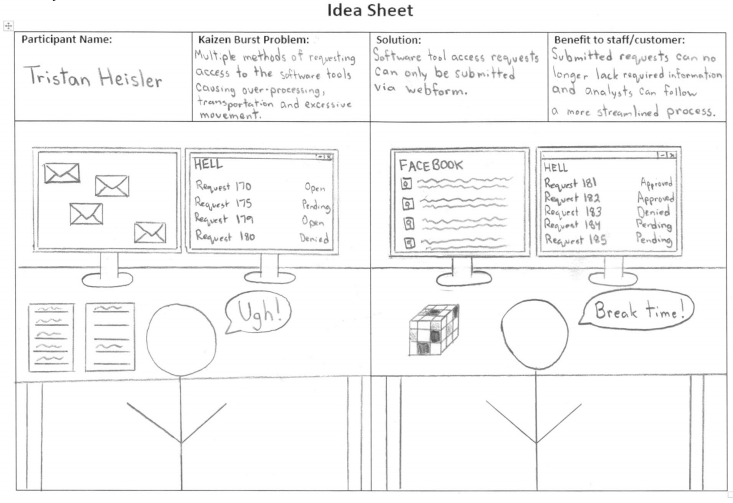 Idea Sheet
Participant Name:
Tristan Heisler
Kaizen Burst Problem:
Multiple methods of requesting
access to the software tools
causing over-processing,
transportation and excessive
movement.
Solution:
Software tool access requests
can only be submitted
via webform.
Benefit to staff/customer:
Submitted requests can no
longer lack required information
and analysts can follow
a more streamlined process.
HELL
Request 170 Open
Request 175 Pending
Request 179 Open
Request 180 Denied
Ugh!
FACEBOOK
HELL
Request 181 Approved
Request 182 Approved
Request 183 Denied
Request 184 Pending
Request 185 Pending
Break time!